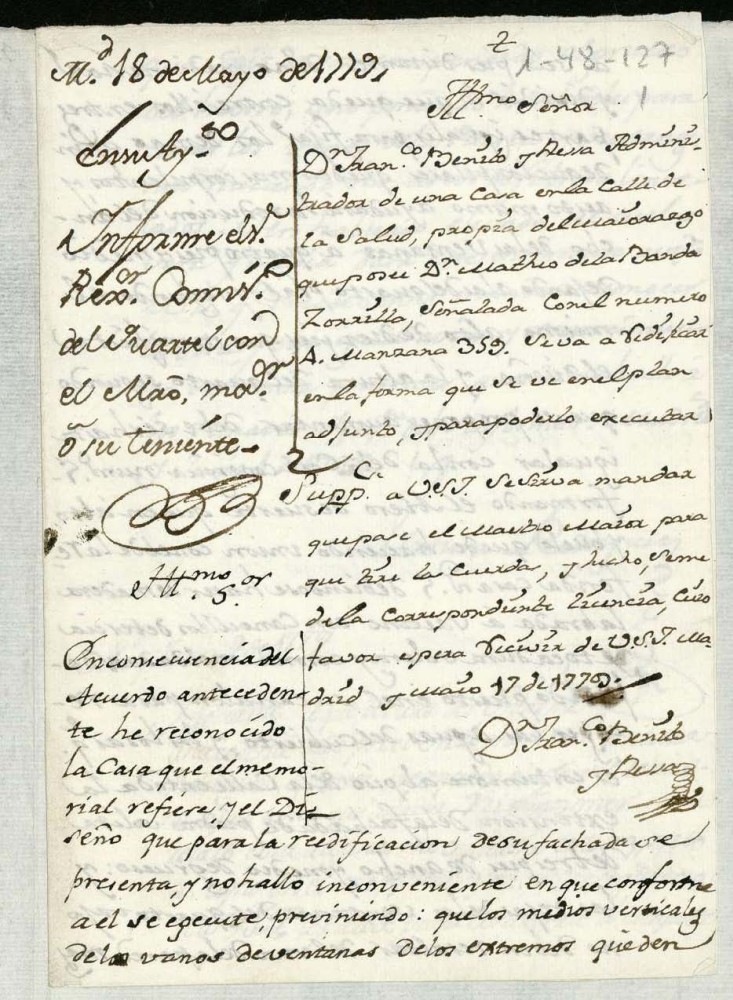 M.d 18 de Mayo de 1779,
En su Ay.to
Informe el S.r
Rex.or Comis.o
del Quartel con
el Mro, ma.or
ō su Teniente.
1-48-127
1
Yll.mo Señor
D.n Fran.co Benito y Reva Adminis-
trador de una Casa en la Calle de
la Salud, propia del Maiorazgo
que posee D.n Matheo de la Banda
Zorrilla, Señalada con el numero
4. Manzana 359. se va a redificar
en la forma que se ve en el plan
adjunto, y para poderlo executar
Supp.ca a V.S.I. se sirva mandar
que pase el Maestro Maior para
que tire la Cuerda, y hecho, se me
de la Correspondiente licencia, Cuio
favor espera recivir de V.S.I. Ma-
drid y Maio 17 de 1779.
D.n Fran.co Benito
y Reva
Yll.mo S.or
En consecuencia del
Acuerdo anteceden-
te he reconocido
la Casa que el memo-
rial refiere, y el Di-
seño que para la reedificacion de su fachada se
presenta, y no hallo inconveniente en que conforme
a el se egecute, previniendo: que los medios verticales
de los vanos de ventanas de los extremos queden